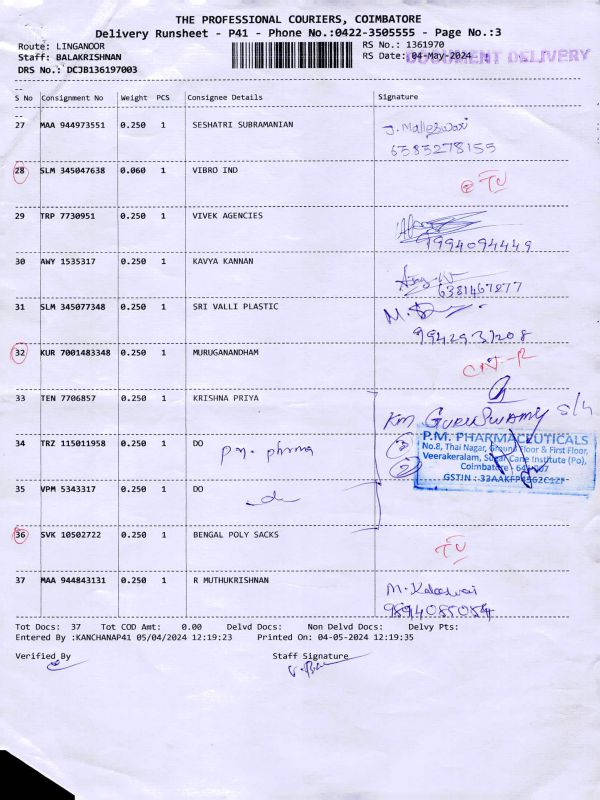 THE PROFESSIONAL COURIERS, COIMBATORE
Delivery Runsheet - P41 - Phone No.:0422-3505555 - Page No.:3
Route: LINGANOOR RS No.: 1361970
Staff: BALAKRISHNAN RS Date: 04-May-2024 DOCUMENT DELIVERY
DRS No.: DCJB136197003
S No Consignment No Weight PCS Consignee Details Signature
27 MAA 944973551 0.250 1 SESHATRI SUBRAMANIAN J. Malleswari
6383278155
28 SLM 345047638 0.060 1 VIBRO IND
29 TRP 7730951 0.250 1 VIVEK AGENCIES
9994094449
30 AWY 1535317 0.250 1 KAVYA KANNAN
6381467877
31 SLM 345077348 0.250 1 SRI VALLI PLASTIC
9942937208
32 KUR 7001483348 0.250 1 MURUGANANDHAM
33 TEN 7706857 0.250 1 KRISHNA PRIYA
KM GURUSWAMY S/4
34 TRZ 115011958 0.250 1 DO P.M. pharma
P.M. PHARMACEUTICALS
No.8, Thai Nagar, Ground Floor & First Floor,
Veerakeralam, Sugar Cane Institute (Po),
Coimbatore - 641 007
GSTIN :
35 VPM 5343317 0.250 1 DO
36 SVK 10502722 0.250 1 BENGAL POLY SACKS
37 MAA 944843131 0.250 1 R MUTHUKRISHNAN
9894085084
Tot Docs: 37 Tot COD Amt: 0.00 Delvd Docs: Non Delvd Docs: Delvy Pts:
Entered By :KANCHANAP41 05/04/2024 12:19:23 Printed On: 04-05-2024 12:19:35
Verified By Staff Signature